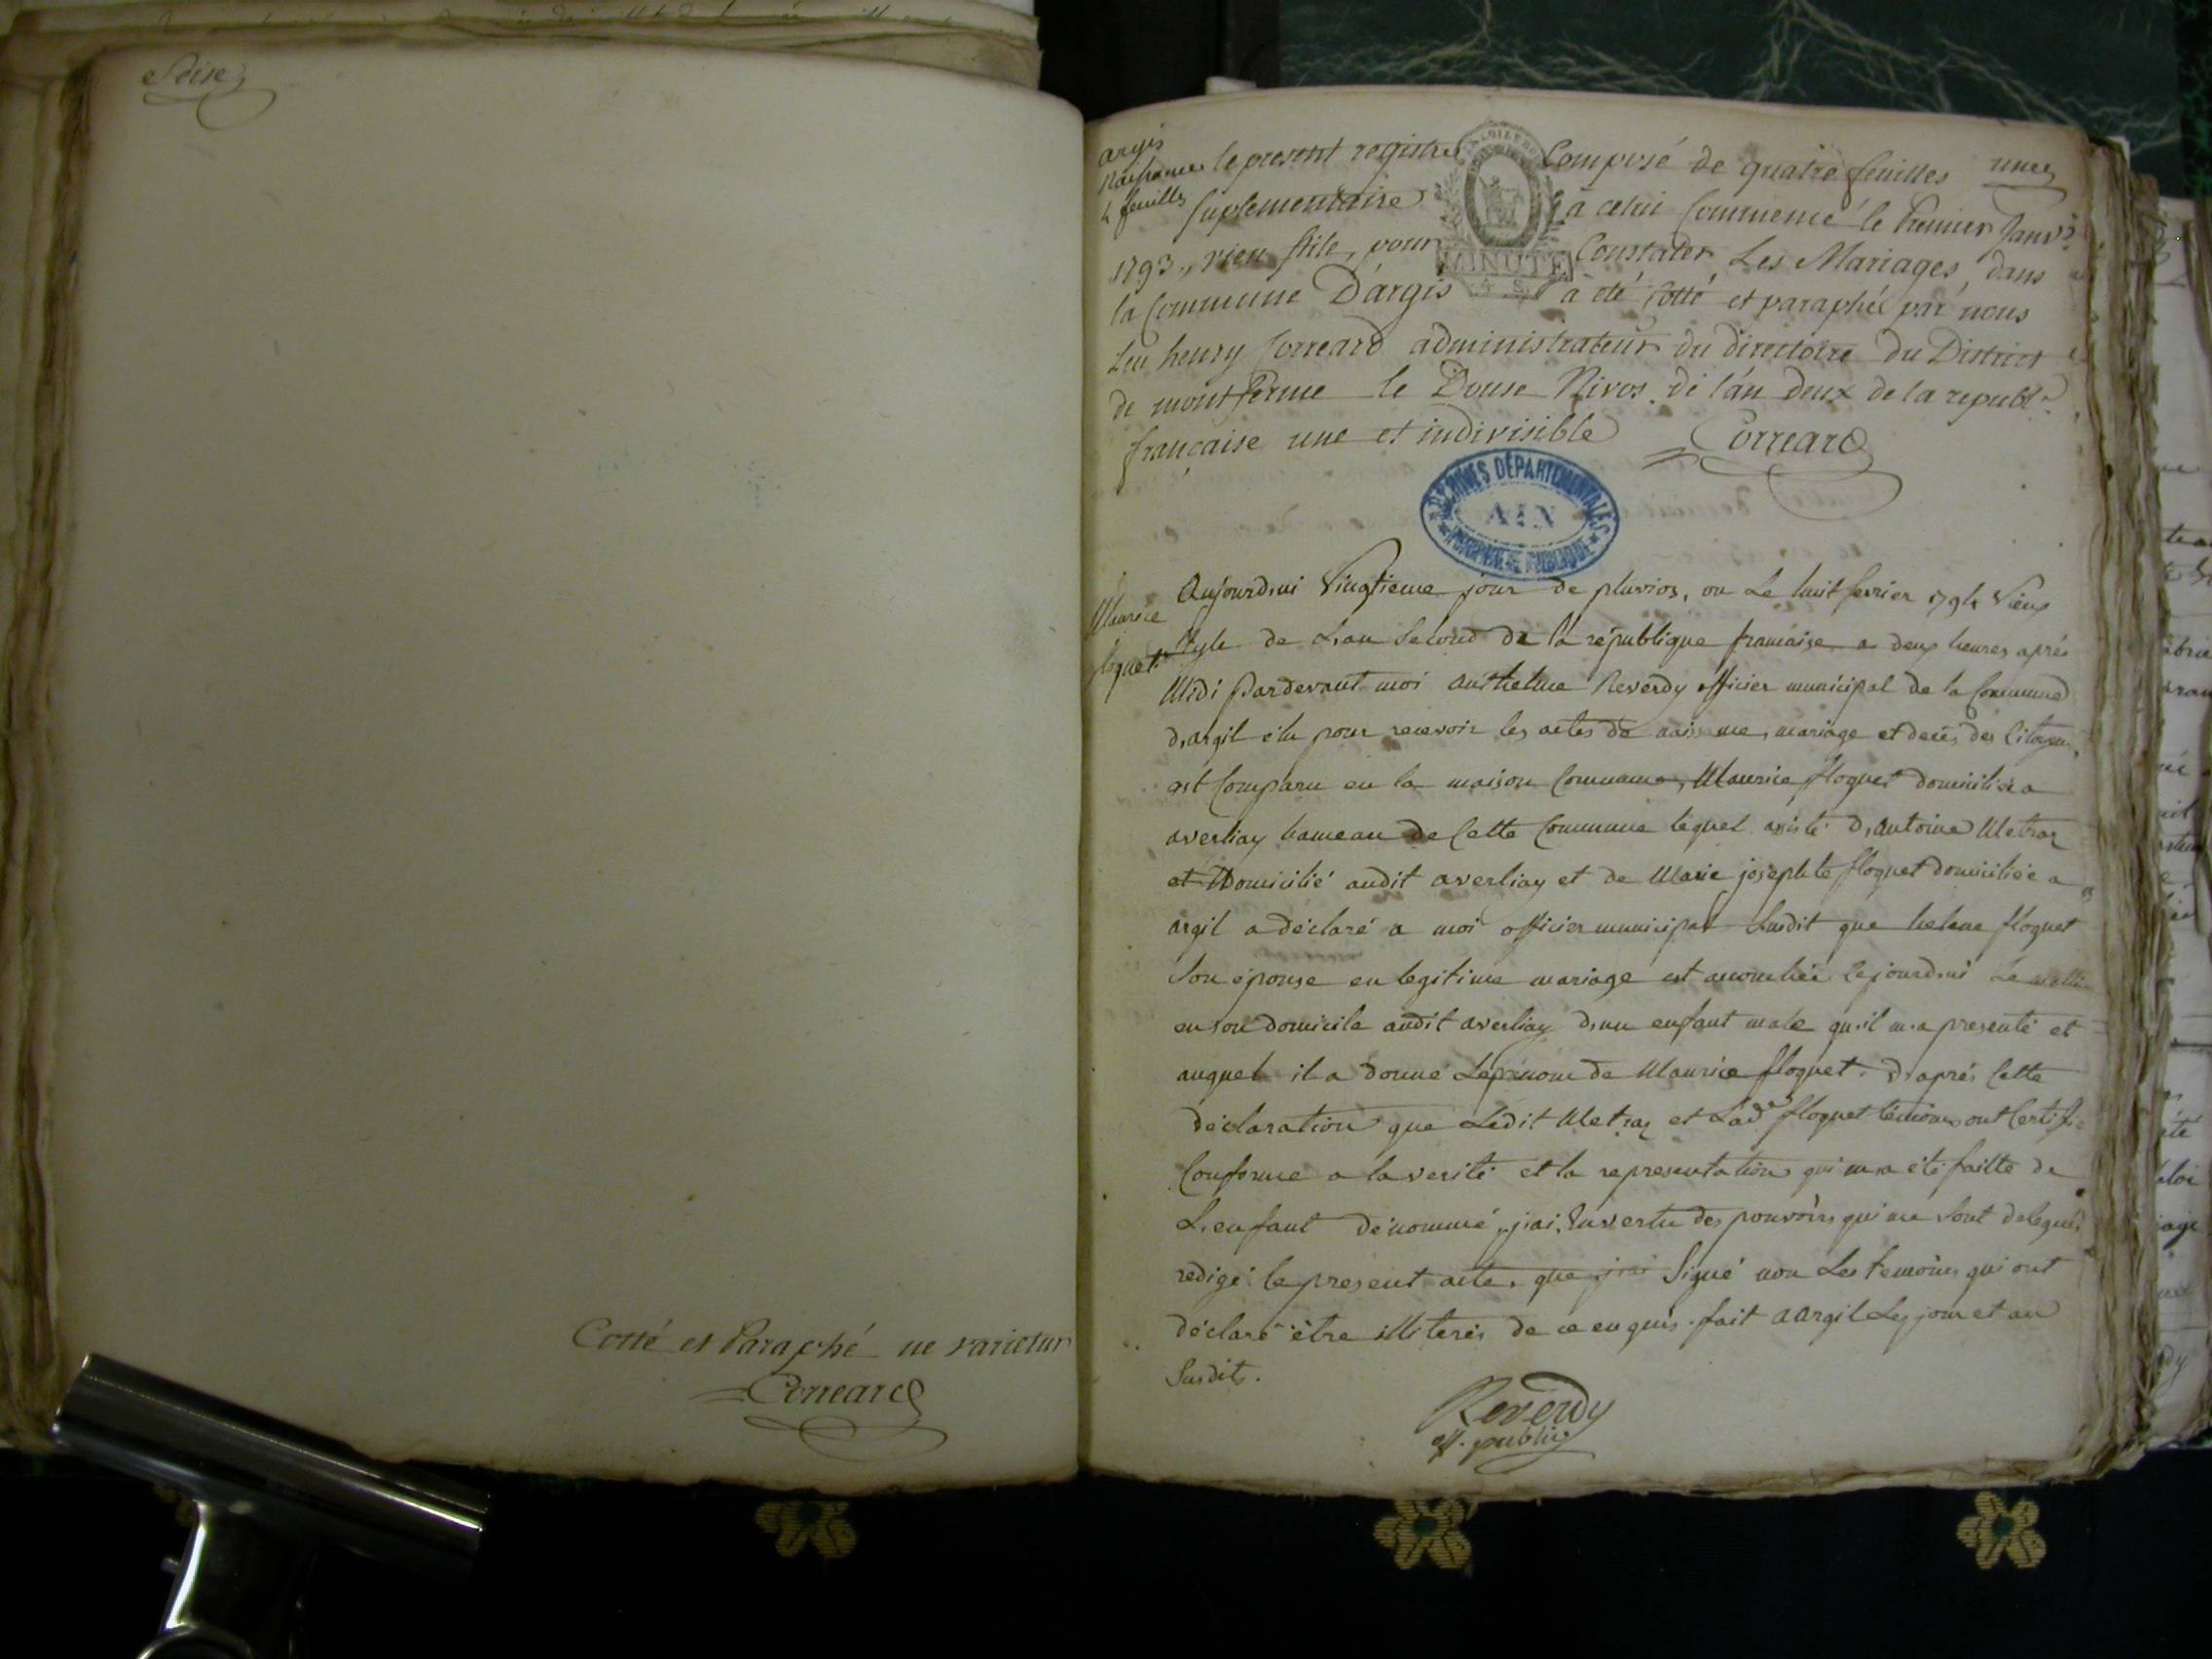 Seise
Cotté et Paraphé ne varietur
Correard
argis
Naissances
4 feuilles
le present registre Composé de quatre feuilles une
Suplementaire à celui Commencé le Premier Janvr
1793., vieu stile, pour Constater Les Mariages dans
la Commune D'argis a été Cotté et paraphée par nous
henry Correard administrateur du directoire du District
de montferme le Douse Nivos de l'an deux de la republ
française une et indivisible Correard
MINUTE
ARCHIVES DÉPARTEMENTALES
AIN
Maurice
floquet
Aujourdhui Vingtieme jour de pluvios, ou Le huit fevrier 1794 Vieux
Style de L,an Second de la république francaise a deux heures aprés
Midi Pardevant moi anthelme Reverdy officier municipal de la Commune
d,argil élu pour recevoir les actes de naissance, mariage et decés des Citoyens,
est Comparu en la maison Commune, Maurice floquet domicilié a
averliay hameau de Cette Commune lequel assisté d,antoine Metraz
et Domicilié audit averliay et de Marie josephte floquet domiciliée a
argil a déclaré a moi officier municipal Susdit que helene floquet
Son épouse en legitime mariage est accouchée Cejourdhui Le
en son domicile audit averliay d,un enfant male qu,il m,a presenté et
auquel il a donné Leprénom de Maurice floquet. d,aprés Cette
déclaration que Ledit Metraz et Lade floquet témoins ont Certifié
Conforme a la verité et la representation qui m,a été faitte de
L,enfant dénommé, j,ai, Envertu des pouvoirs qui me Sont delegués
redigé le present acte, que j,ai Signé non Les temoins qui ont
déclaré être illiterés de ce enquis. fait a argil Les jour et an
Susdits.
Reverdy
off. public